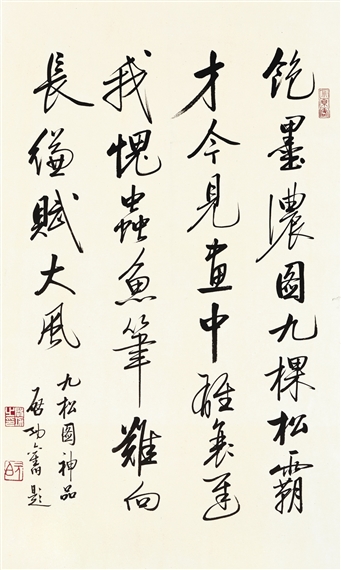 飽墨濃图九棵松霸
才今見畫中雄衰遲
我愧蟲魚筆難向
長縑賦大風
九松圖神品
啟功舊題